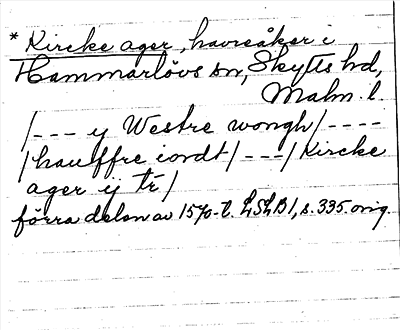 * Kircke ager, havreåker i
Hammarlövs sn, Skytts hd,
Malm. l.
/--- y Westre wongh/----
/hauffre iordt/---/Kircke
ager ij tr/
förra delen av 1570-t. LSLB1, s. 335. orig.